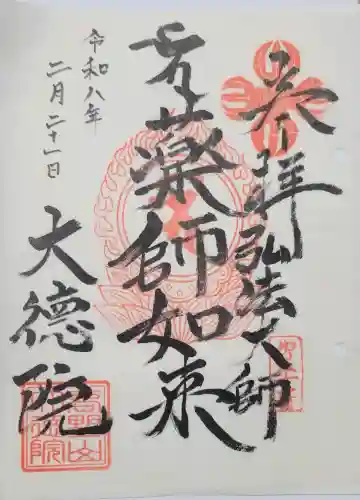 参拝 弘法大師
薬師如来
令和八年
二月二十一日
大徳院